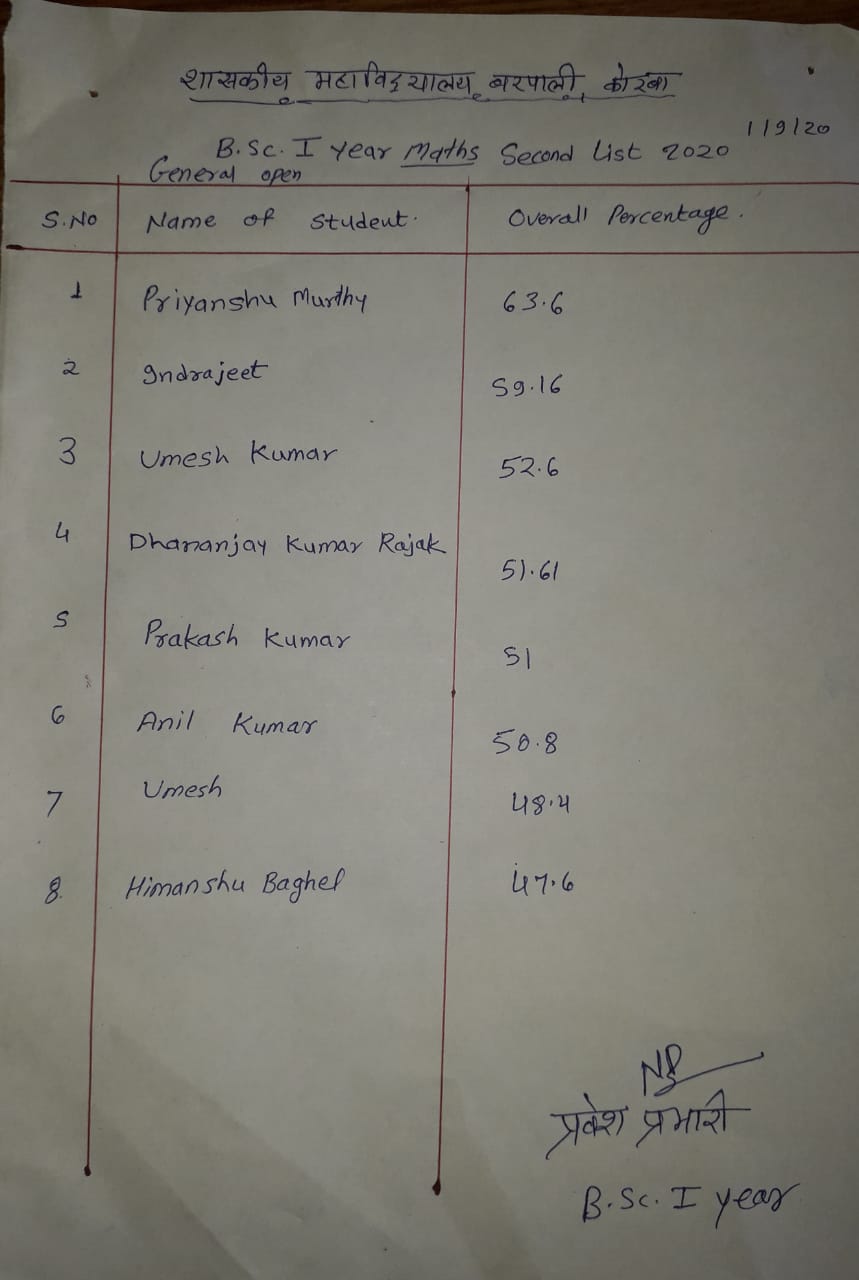 शासकीय महाविद्यालय, बरपाली, कोरबा
1/9/20
B.Sc. I year Maths Second List 2020
General open
S.No Name of Student. Overall Percentage.
1 Priyanshu Murthy 63.6
2 Indrajeet 59.16
3 Umesh Kumar 52.6
4 Dhananjay Kumar Rajak 51.61
5 Prakash Kumar 51
6 Anil Kumar 50.8
7 Umesh 48.4
8. Himanshu Baghel 47.6
प्रवेश प्रभारी
B.Sc. I year